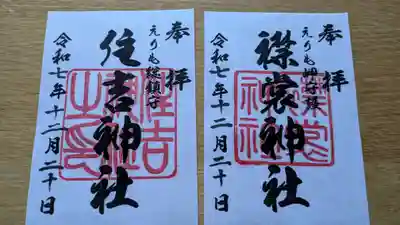 奉拝
えりも岬守護
襟裳神社
令和七年十二月二十日
奉拝
えりも総鎮守
住吉神社
令和七年十二月二十日